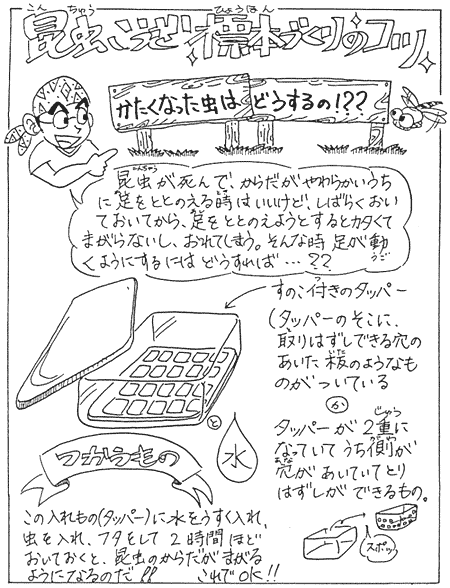 昆虫こうさい標本づくりのコツ
かたくなった虫は、どうするの!??
昆虫が死んで、からだがやわらかいうち
に足をととのえる時はいいけど、しばらくおい
ておいてから、足をととのえようとするとカタくて
まがらないし、おれてしまう。そんな時足が動
くようにするにはどうすれば…??
すのこ付きのタッパー
(タッパーのそこに、
取りはずしできる穴の
あいた板のようなも
のがついている
か
タッパーが2重に
なっていてうち側が
穴があいていてとり
はずしができるもの。
と
水
つかうもの
スポッ
この入れもの(タッパー)に水をうすく入れ、
虫を入れ、フタをして2時間ほど
おいておくと、昆虫のからだがまがる
ようになるのだ!! これでOK!!